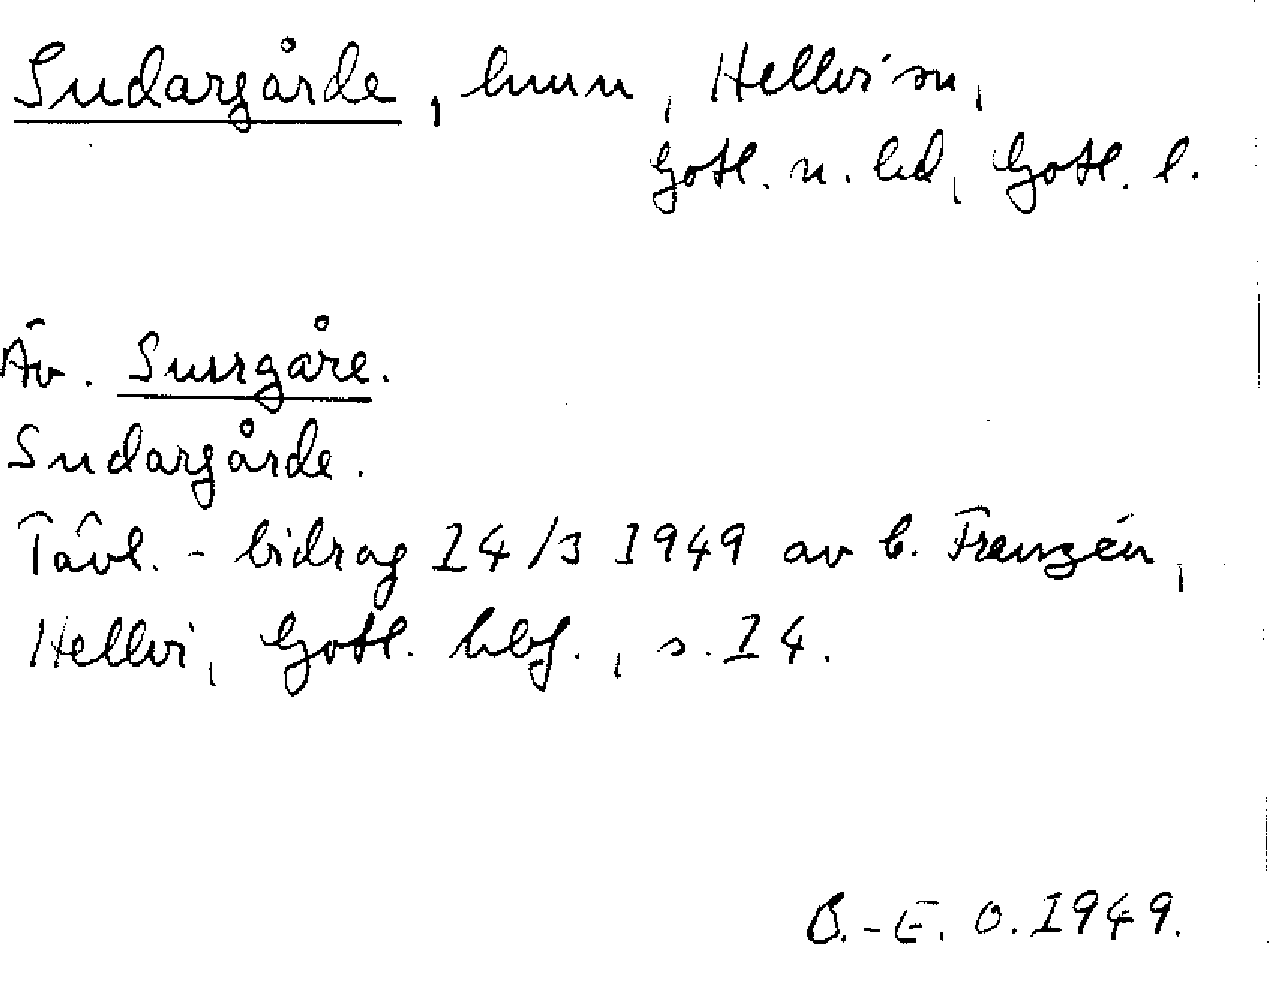 Sudargårde, hmn, Hellvi sn,
Gotl. n. hd, Gotl. l.
Äv. Surrgåre.
Sudargårde.
Tävl.-bidrag 14/3 1949 av G. Franzén,
Hellvi, Gotl. hbf., s. 14.
B.-E. O. 1949.